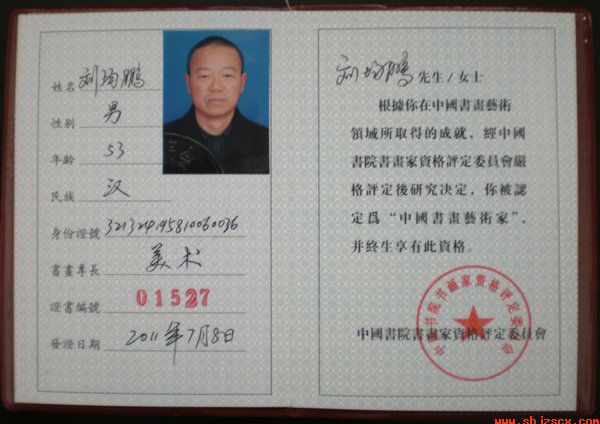 姓名 刘均鹏
性别 男
年齡 53
民族 汉
身份證號 321324195810060036
書畫專長 美术
證書编號 01527
發證日期 2011年7月8日
刘均鹏 先生/女士
根據你在中國書畫藝術
領域所取得的成就，經中國
書院書畫家資格評定委員會嚴
格評定後研究决定，你被認
定爲“中國書畫藝術家”，
并終生享有此資格。
中國書院書畫家資格評定委員會
中國书院书画家资格评定委员会
www.shjzscx.com